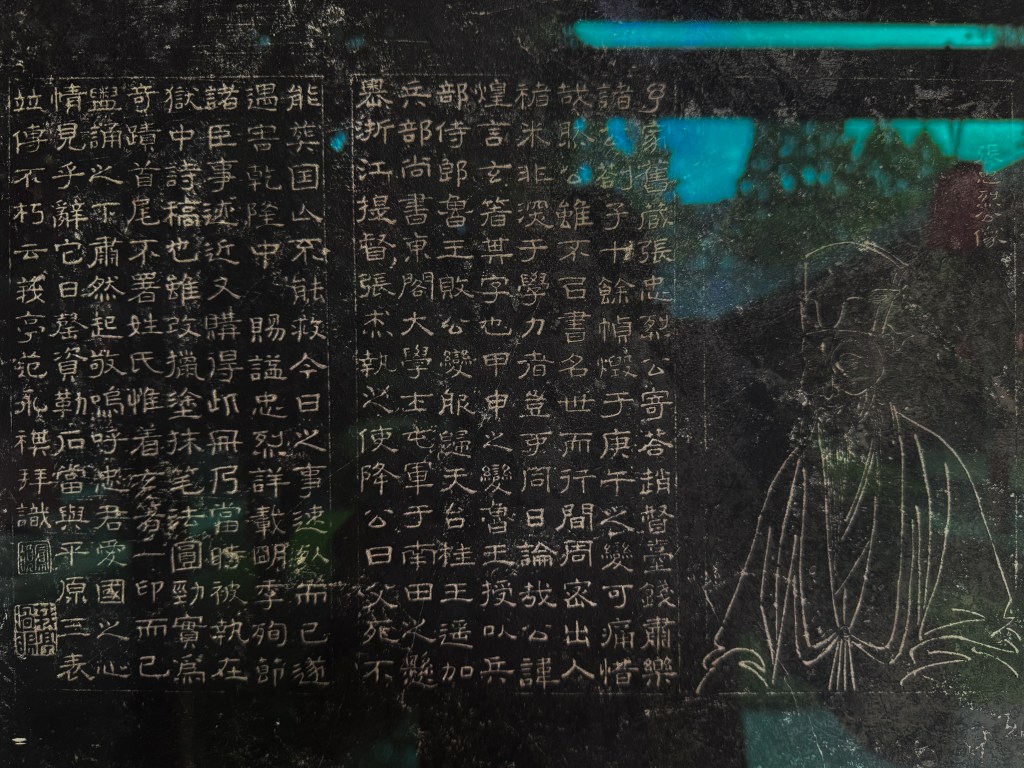 張忠烈公像
予家舊藏張忠烈公寄荅趙督臺錢肅樂
諸公劄子十餘幀燬于庚午之變可痛惜
哉然公雖不召書名世而行間周密出人
褚米非深于學力者豈可同日論哉公諱
煌言玄箸其字也甲申之變魯王授以兵
部侍郎魯王敗公變服歸天台桂王遥加
兵部尚書東閣大學士屯軍于南田之懸
嶴浙江提督張杰執之使降公曰父死不
能葬国亾不能救今日之事速死而已遂
遇害乾隆中 賜謚忠烈詳載明季殉節
諸臣事迹近又購得此冊乃當時被執在
獄中詩稿也雖攺竄塗抹笔法圓勁實為
奇蹟首尾不署姓氏惟着玄箸一印而已
盥誦之下肅然起敬嗚呼忠君愛國之心
情見乎辭它日罄資勒石當與平原三表
竝傳不朽云莪亭范永祺拜識